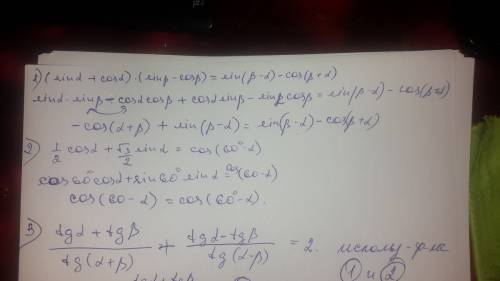 1) (sinα + cosα)·(sinβ - cosβ) = sin(β-α) - cos(β+α)
sinα·sinβ - cosα cosβ + cosα sinβ - sinβ cosβ = sin(β-α) - cos(β+α)
- cos(α+β) + sin(β-α) = sin(β-α) - cos(β+α)
2) 1/2 cosα + √3/2 sinα = cos(60°-α)
cos60° cosα + sin60° sinα = cos(60-α)
cos(60-α) = cos(60°-α).
3) (tgα + tgβ)/(tg(α+β)) + (tgα - tgβ)/(tg(α-β)) = 2. использ-
① и ②